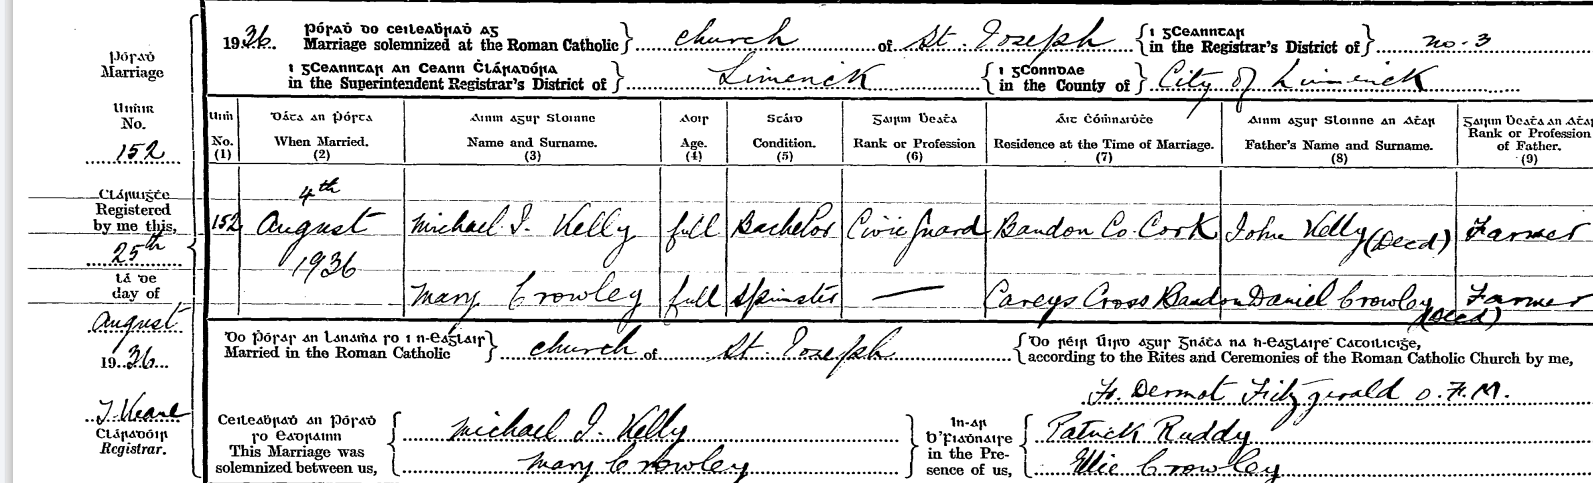 1936. Pórad do ceileabrad ag
Marriage solemnized at the Roman Catholic } church of St. Joseph { i gCeanntar
in the Registrar's District of } No. 3
i gCeanntar an Ceann Cláradóra
in the Superintendent Registrar's District of } Limerick { i gConndae
in the County of } City of Limerick
Pórad
Marriage
Uimir
No.
152
Uim. Dáta an Pórta Ainm agus Sloinne Aois Stáid Gairm Beata Áit Cómnuite Ainm agus Sloinne an Atar Gairm Beata an Atar
No. When Married. Name and Surname. Age. Condition. Rank or Profession Residence at the Time of Marriage. Father's Name and Surname. Rank or Profession of Father.
(1) (2) (3) (4) (5) (6) (7) (8) (9)
Cláruigte
Registered
by me this,
25th
lá de
day of
August
1936
152 4th August 1936 Michael J. Kelly full Bachelor Civic Guard Bandon Co. Cork John Kelly (Decd) Farmer
Mary Crowley full Spinster — Careys Cross Bandon Daniel Crowley (Decd) Farmer
Do Pórar an Lanama so i n-eaglais
Married in the Roman Catholic } church of St. Joseph { Do réir Úird agus Gnáta na h-eaglaise Catoilicige,
according to the Rites and Ceremonies of the Roman Catholic Church by me,
Fr. Dermot Fitzgerald O.F.M.
Registrar.
Cláradóir
Ceileabrad an Pórad
so eadrainn
This Marriage was
solemnized between us, { Michael J. Kelly
Mary Crowley } In-ár
b'Fiadnaire
in the Pre-
sence of us, { Patrick Ruddy
Ellie Crowley